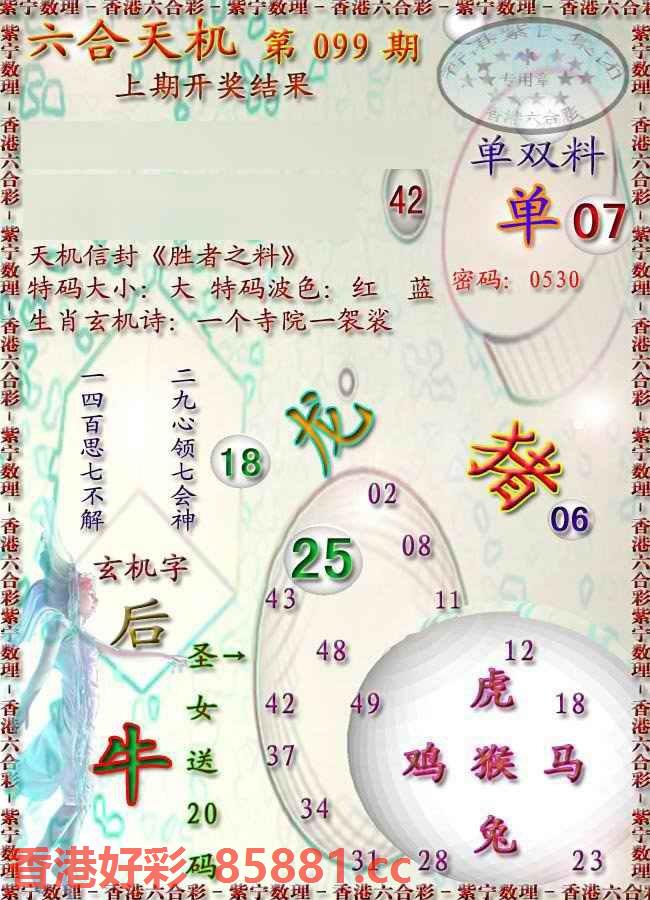 紫宁数理－香港六合彩－紫宁数理－香港六合彩－紫宁数理－香港六合彩
六合天机 第 099 期
上期开奖结果
专用章
香港六合彩
单双料
单 07
42
天机信封《胜者之料》
密码：0530
特码大小：大 特码波色：红 蓝
生肖玄机诗：一个寺院一袈裟
一四百思七不解
二九心领七会神
龙
猪
18
06
02
25
08
43
11
玄机字
后
48
12
虎
42
49
18
牛
圣→
女
送
20
码
37
鸡 猴 马
34
兔
31
28
23
香港好彩 85881.cc
紫宁数理－香港六合彩－紫宁数理－香港六合彩－紫宁数理－香港六合彩